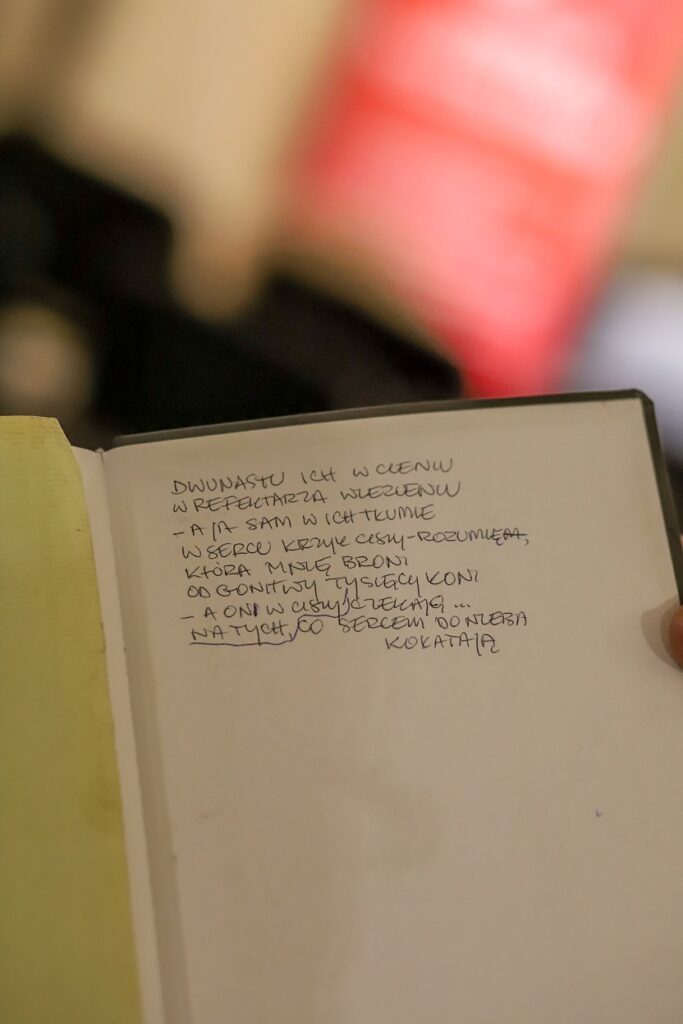 DWUNASTU ICH W CIENIU
W REFEKTARZA WIĘZIENIU
- A JA SAM W ICH TŁUMIE
W SERCU KRZYK CISZY - ROZUMIEM,
KTÓRA MNIE BRONI
OD GONITWY TYSIĘCY KONI
- A ONI W CISZY CZEKAJĄ ...
NA TYCH, CO SERCEM DO NIEBA
KOŁATAJĄ